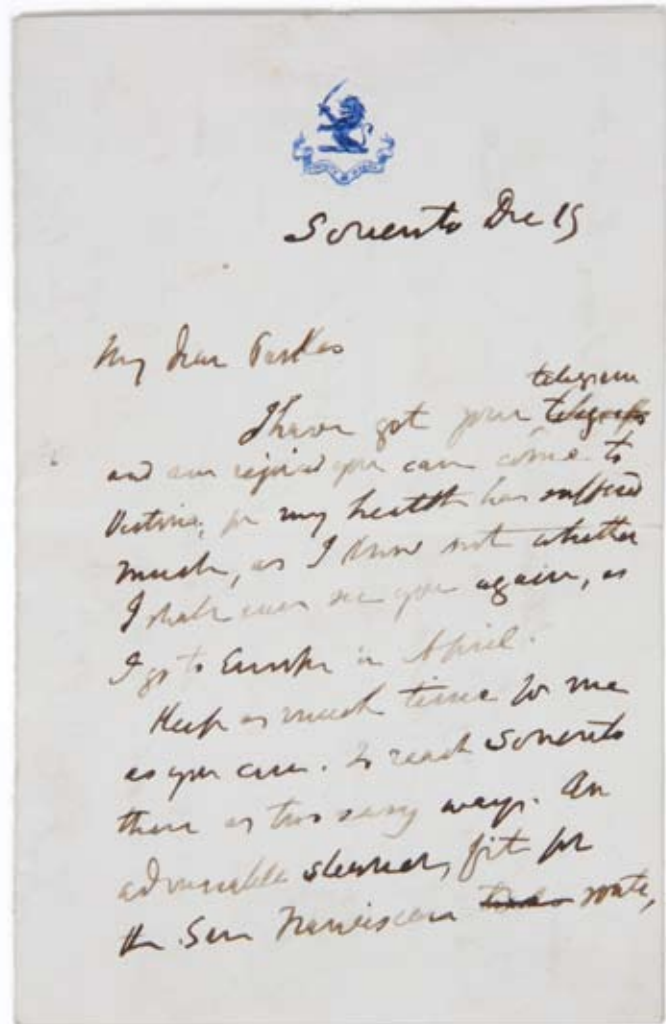 Sorrento Dec 15
My Dear Parkes
telegram
I have got your telegraph
and am rejoiced you can come to
Victoria, for my health has suffered
much, as I know not whether
I shall ever see you again, as
I go to Europe in April.
Keep as much time for me
as you can. To reach Sorrento
there are two easy ways. An
admirable steamer, fit for
the San Francisco route,